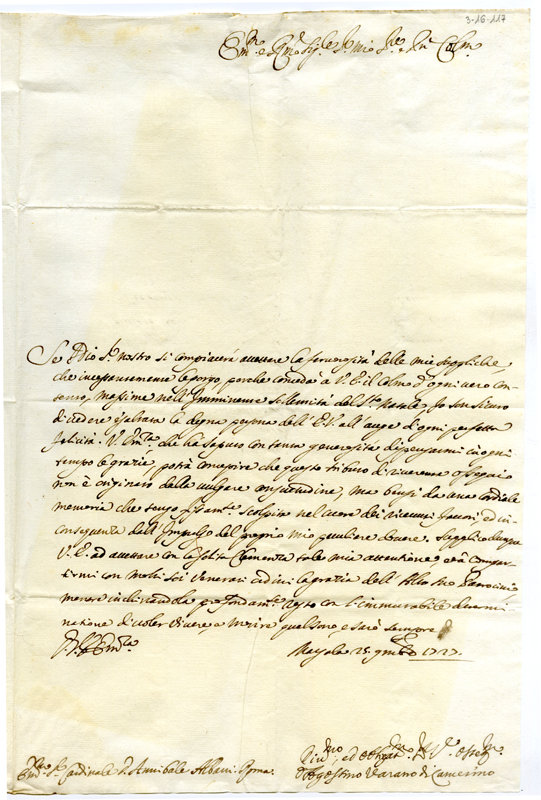 3-16-117
Em.º e Rmo Sig.re S.r mio Pne e Pne Colmo
Se Iddio S.r nostro si compiacerà accettare la fervorosità delle mie suppliche,
che incessantemente le porgo, perche conceda à V. E. il colmo d'ogni vero con-
tento, massime nell'Imminente solennità del S.to Natale, Io son sicuro
di vedere esaltata la degna persona dell'E. V. all'auge di ogni perfetta
felicità. V. Em.za che hà saputo con tanta generosità dispensarmi in ogni
tempo le grazie, potrà concepire che questo tributo di riverente ossequio
non è originato dalla vulgare consuetudine, ma bensi da una cordiale
memoria che tengo scolpita nel cuore dei ricevuti favori, ed in
conseguenza dall'Impulso del proprio mio peculiare dovere. Supplico dunque
V. E. ad accettare con la solita Clemenza tale mia attenzione, e à compar-
tirmi con molti Soi Venerati cenni la grazia dell'Alto Suo Patrocinio
mentre inchinandola profondam.te resto con l'immutabile determi-
nazione di voler vivere, e morire qual sono, e sarò sempre
Di V. Em.za
25 9mbre 1727.
Em.º S.r Cardinale D. Annibale Albani. Roma.
D'Agostino Varano di Camerino